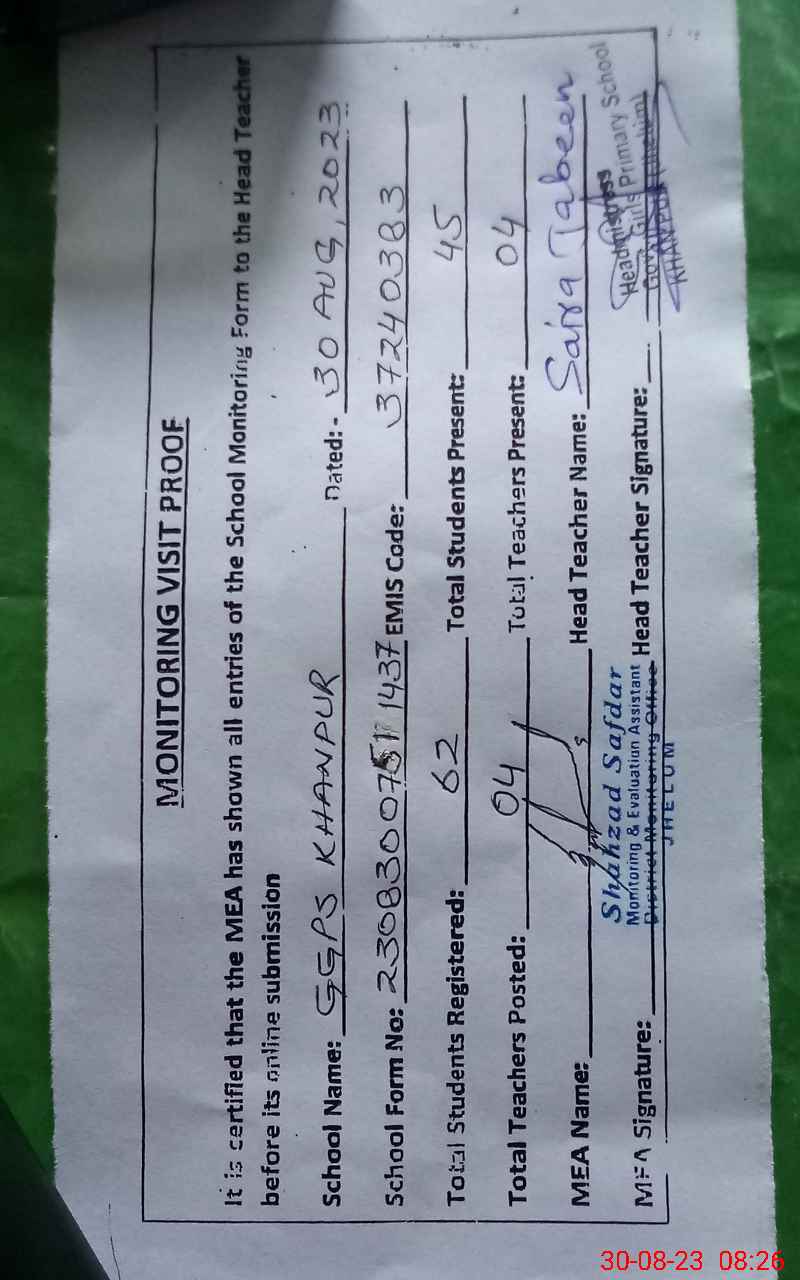 MONITORING VISIT PROOF
It is certified that the MEA has shown all entries of the School Monitoring Form to the Head Teacher
before its online submission
School Name: GGPS KHANPUR Dated:- 30 AUG, 2023
School Form No: 2308300751 1437 EMIS Code: 37240383
Total Students Registered: 62 Total Students Present: 45
Total Teachers Posted: 04 Total Teachers Present: 04
MEA Name: Head Teacher Name: Saira Jabeen
Shahzad Safdar
Monitoring & Evaluation Assistant
District Monitoring Office
JHELUM
MEA Signature: Head Teacher Signature:
Headmistress
Govt. Girls Primary School
KHANPUR (Jhelum)
30-08-23 08:26